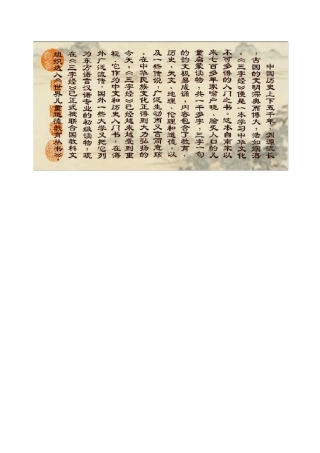 中国历史上下五千年，源远流长
，古国的文明深奥而博大，浩如烟海
，《三字经》便是一本学习中华文化
不可多得的入门书之一。这本自南宋以
来七百多年家喻户晓、脍炙人口的儿
童启蒙读物，一共一千多字，三字一句
的韵文极易成诵，内容包含了教育、
历史、天文、地理、伦理和道德，以
及一些传说，广泛生动而又言简意赅
。在中华民族文化正得到大力弘扬的
今天，《三字经》已经越来越受到重
视，它作为中文和历史入门书，在海
外广泛流传，国外一些大学又把它列
为东方语言汉语专业的初级读物，现
在《三字经》已正式被联合国教科文
组织选入《世界儿童道德教育丛书》。